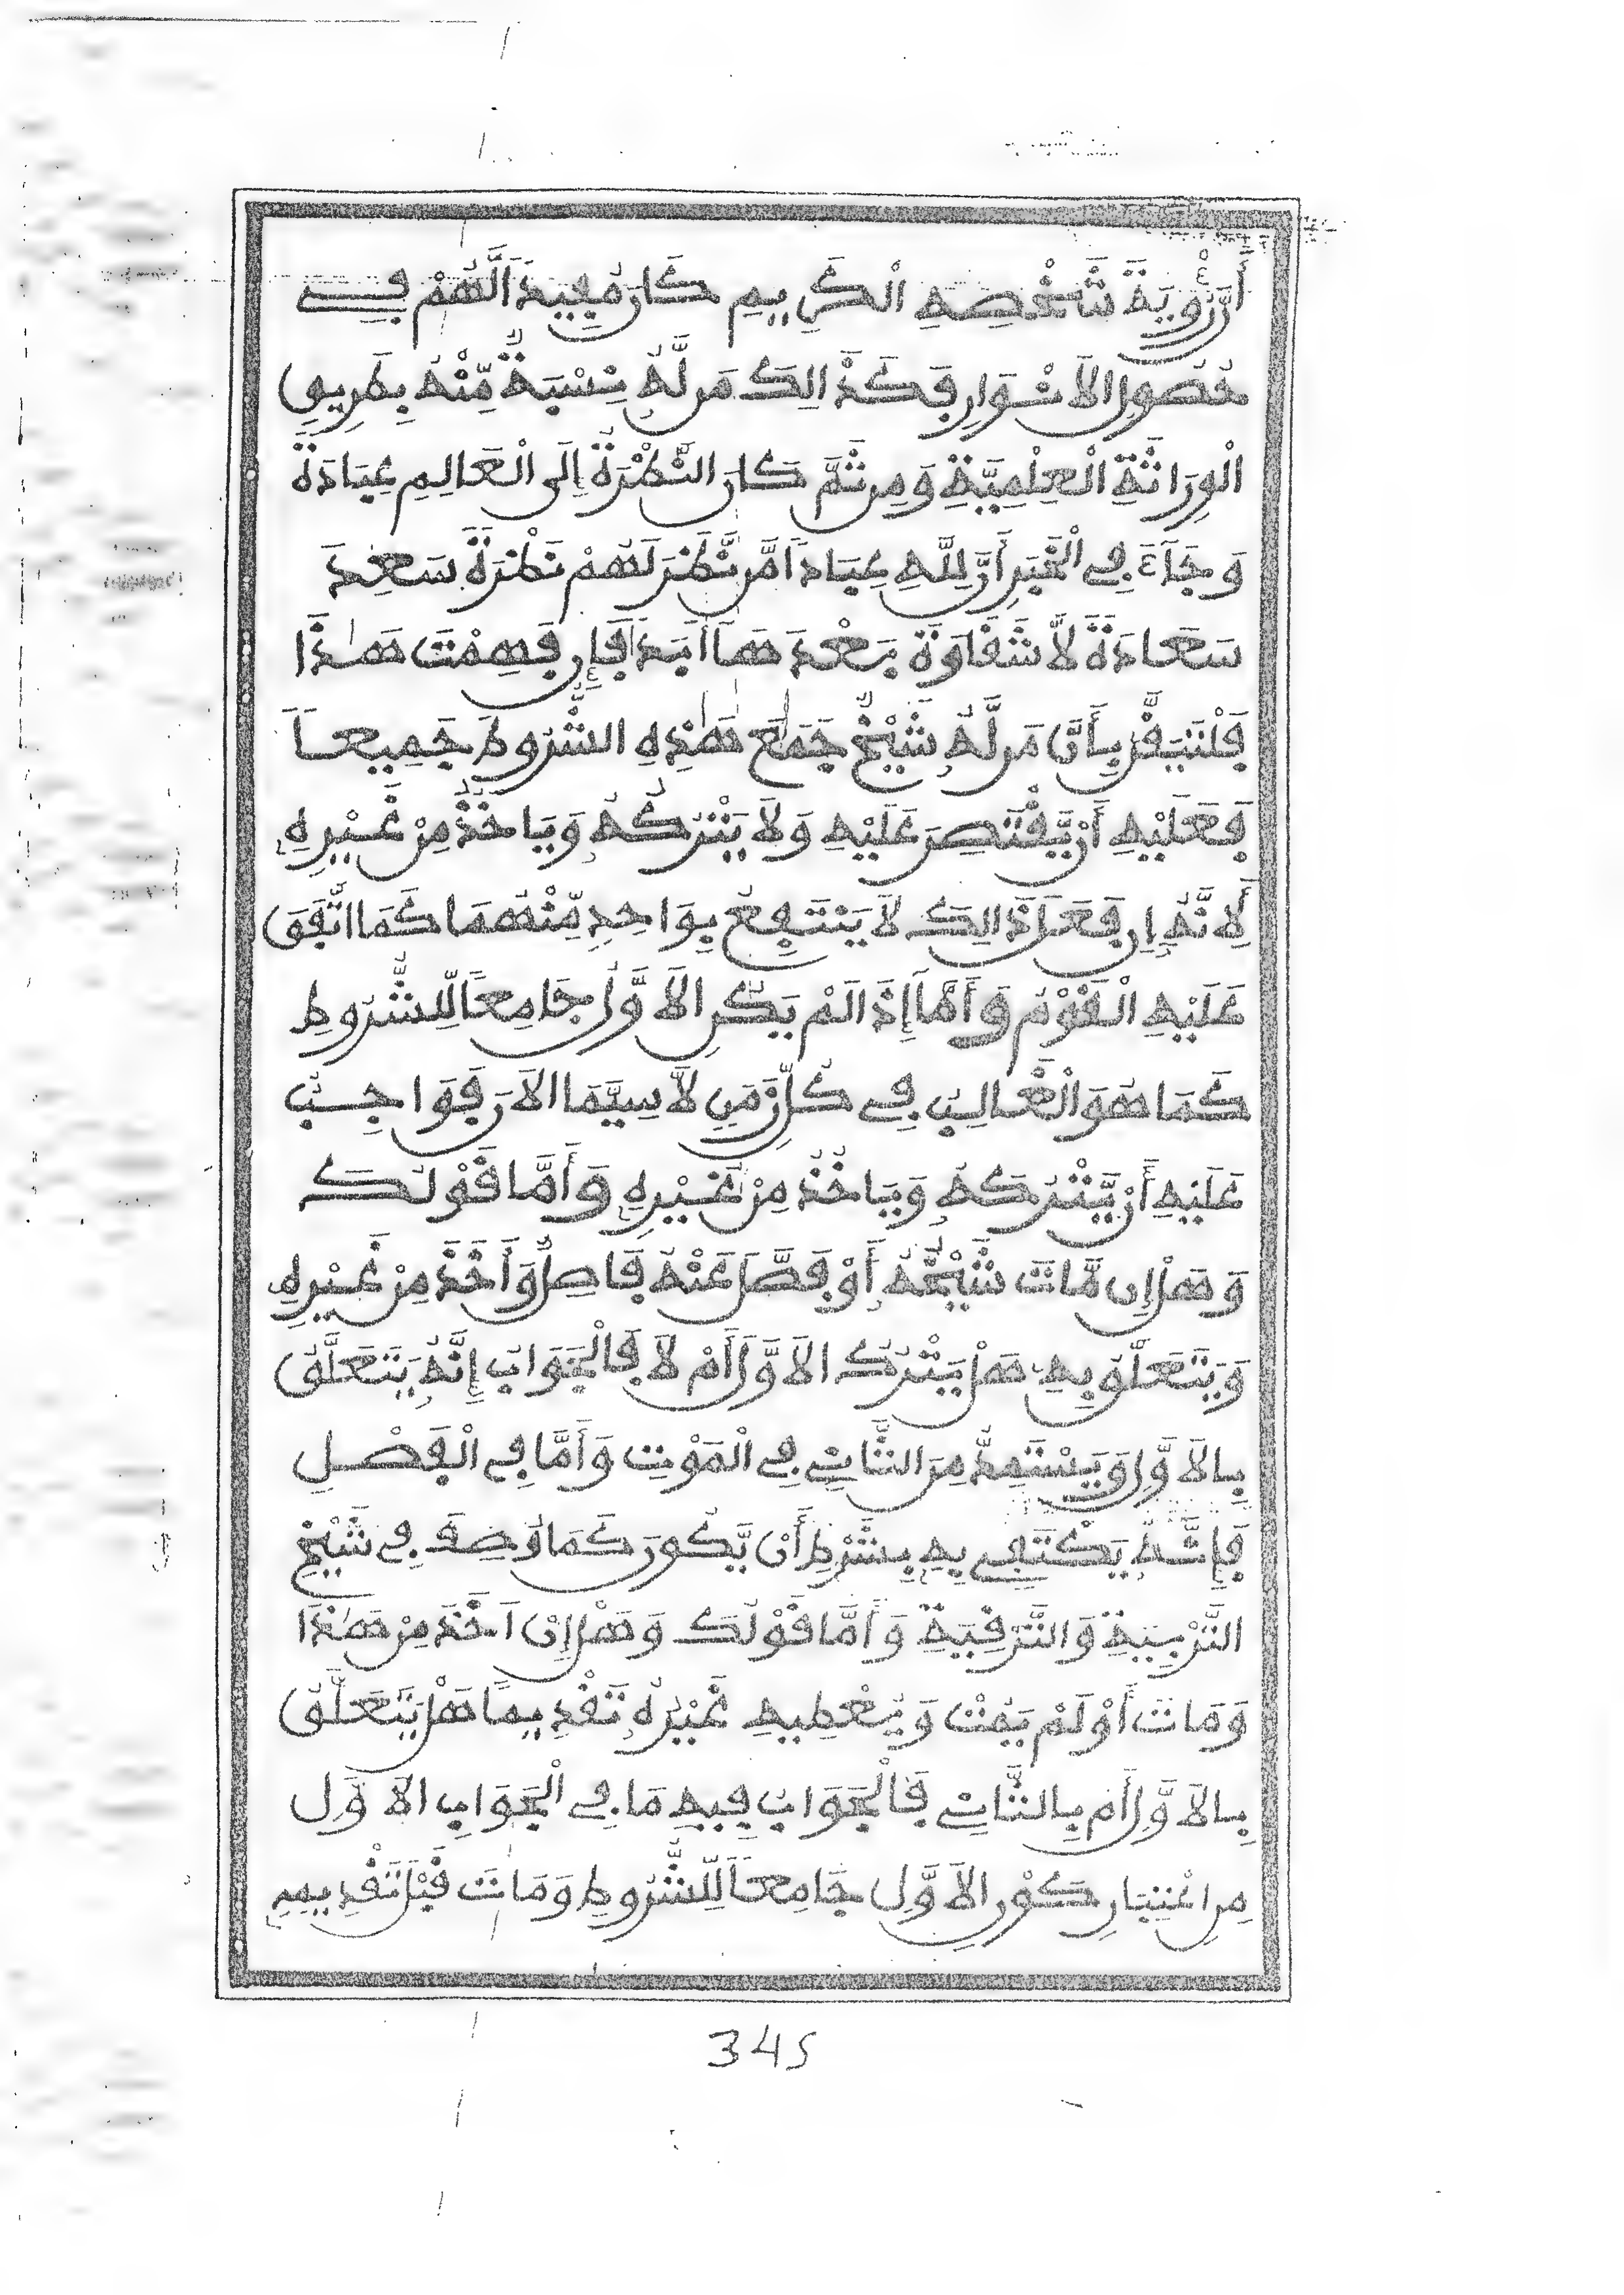 أَنَّ رُؤْيَةَ شَخْصِهِ الْكَرِيمِ كَانَ مُفِيدًا لَّهُمْ فِي
حُصُولِ الْأَنْوَارِ فَكَذَالِكَ مَن لَّهُ نِسْبَةٌ مِّنْهُ بِطَرِيقِ
الْوِرَاثَةِ الْعِلْمِيَّةِ وَمِن ثَمَّ كَانَ النَّظْرَةُ إِلَى الْعَالِمِ عِبَادَةً
وَجَآءَ فِي الْخَبَرِ أَنَّ لِلَّهِ عِبَادًا مَّن نَّظَرَ لَهُمْ نَظْرَةً سَعِدَ
سَعَادَةً لَّا شَقَاوَةَ بَعْدَهَا أَبَدًا فَإِن فَهِمْتَ هَٰذَا
فَلْتَتَيَقَّنْ بِأَنَّ مَن لَّهُ شَيْخٌ جَمَعَ هَٰذِهِ الشُّرُوطَ جَمِيعًا
فَعَلَيْهِ أَنْ يَّقْتَصِرَ عَلَيْهِ وَلَا يَتْرُكُهُ وَيَاخُذُ مِنْ غَيْرِهِ
لِأَنَّهُ إِن فَعَلَ ذَالِكَ لَا يَنْتَفِعُ بِوَاحِدٍ مِّنْهُمَا كَمَا اتَّفَقَ
عَلَيْهِ الْقَوْمُ وَأَمَّا إِذَا لَمْ يَكُنِ الْأَوَّلُ جَامِعًا لِّلشُّرُوطِ
كَمَا هُوَ الْغَالِبُ فِي كُلِّ زَمَنٍ لَّا سِيَّمَا الْآنَ فَوَاجِبٌ
عَلَيْهِ أَنْ يَّتْرُكَهُ وَيَاخُذُ مِنْ غَيْرِهِ وَأَمَّا قَوْلُكَ
وَهَلْ إِن مَّاتَ شَيْخُهُ أَوْ فَصَّلَ عَنْهُ فَاصِلٌ وَأَخَذَ مِنْ غَيْرِهِ
وَيَتَعَلَّقُ بِهِ هَلْ يَتْرُكُ الْأَوَّلَ أَمْ لَا فَالْجَوَابُ إِنَّهُ يَتَعَلَّقُ
بِالْأَوَّلِ وَيَسْتَمِدُّ مِنَ الثَّانِي فِي الْمَوْتِ وَأَمَّا فِي الْفَصْلِ
فَإِنَّهُ يَكْتَفِي بِهِ بِشَرْطِ أَنْ يَّكُونَ كَمَا وُصِفَ فِي شَيْخِ
التَّرْبِيَةِ وَالتَّرْقِيَةِ وَأَمَّا قَوْلُكَ وَهَلْ إِنْ أَخَذَ مِنْ هَٰذَا
وَمَاتَ أَوْ لَمْ يَمُتْ وَيُعْطِيهِ غَيْرُهُ تَقْدِيمًا هَلْ يَتَعَلَّقُ
بِالْأَوَّلِ أَم بِالثَّانِي فَالْجَوَابُ فِيهِ مَا فِي الْجَوَابِ الْأَوَّلِ
مِنِ اعْتِبَارِ كَوْنِ الْأَوَّلِ جَامِعًا لِّلشُّرُوطِ وَمَاتَ قَبْلَ تَقْدِيمِهِ
345